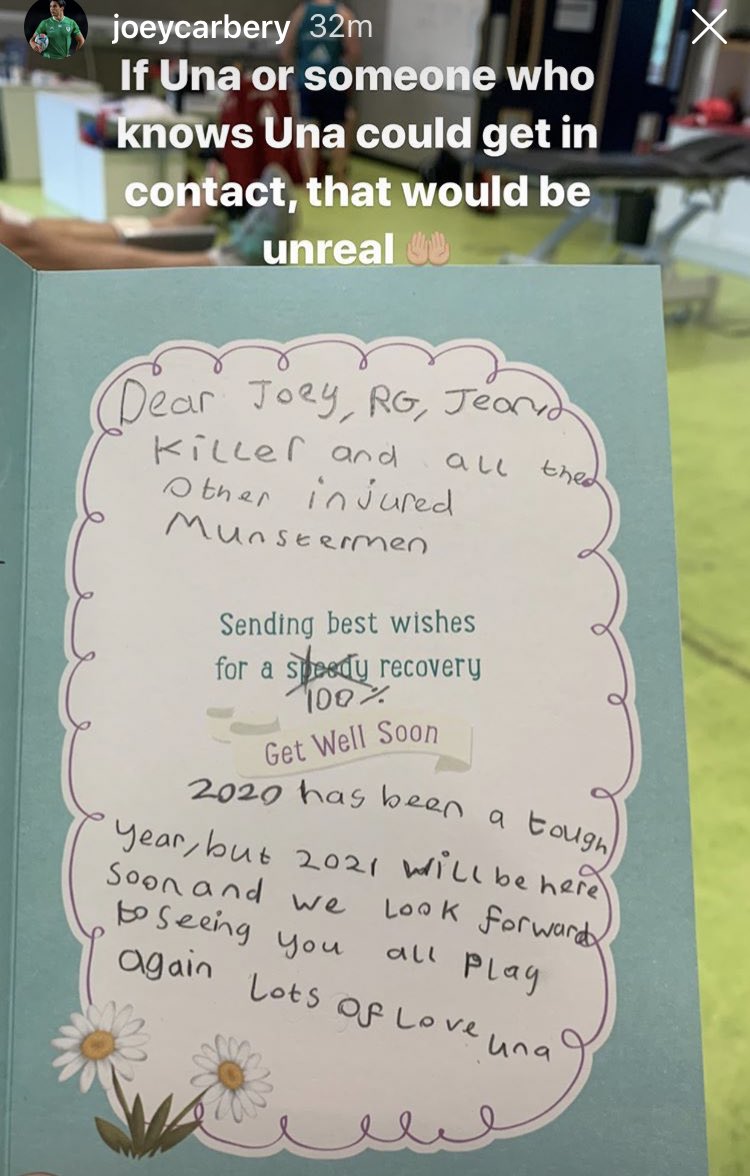 joeycarbery 32m
If Una or someone who
knows Una could get in
contact, that would be
unreal 🤲🏼
Dear Joey, RG, Jean,
Killer and all the
other injured
Munstermen
Sending best wishes
for a speedy recovery
100%
Get Well Soon
2020 has been a tough
year, but 2021 will be here
soon and we look forward
to seeing you all play
again Lots of Love Una